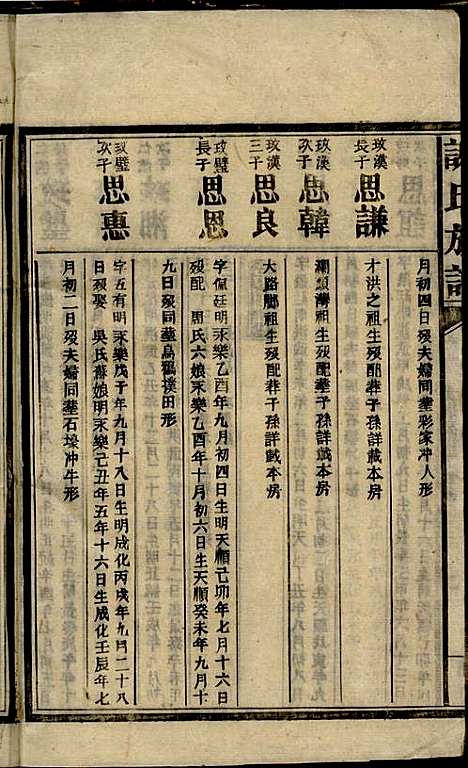 氏族譜
月初四日歿夫婦同塟彩家冲人形
玫漢長子 思謙
才洪之祖生歿配葬子孫詳載本房
玫漢次子 思韓
瀾頭灣祖生歿配塟子孫詳載本房
玫漢三子 思良
大路鄉祖生歿配葬子孫詳載本房
玫璧長子 思恩
字佩廷明永樂乙酉年九月初四日生明天順己卯年七月十六日
歿配 周氏六娘永樂乙酉年十月初六日生天順癸未年九月十
九日歿同塟烏鴉墣田形
玫璧次子 思惠
字五有明永樂戊子年九月十八日生明成化丙戌年九月二十八
日歿娶 吳氏幕娘明永樂己丑年五年十六日生成化壬辰年七
月初二日歿夫婦同塟石壕冲牛形